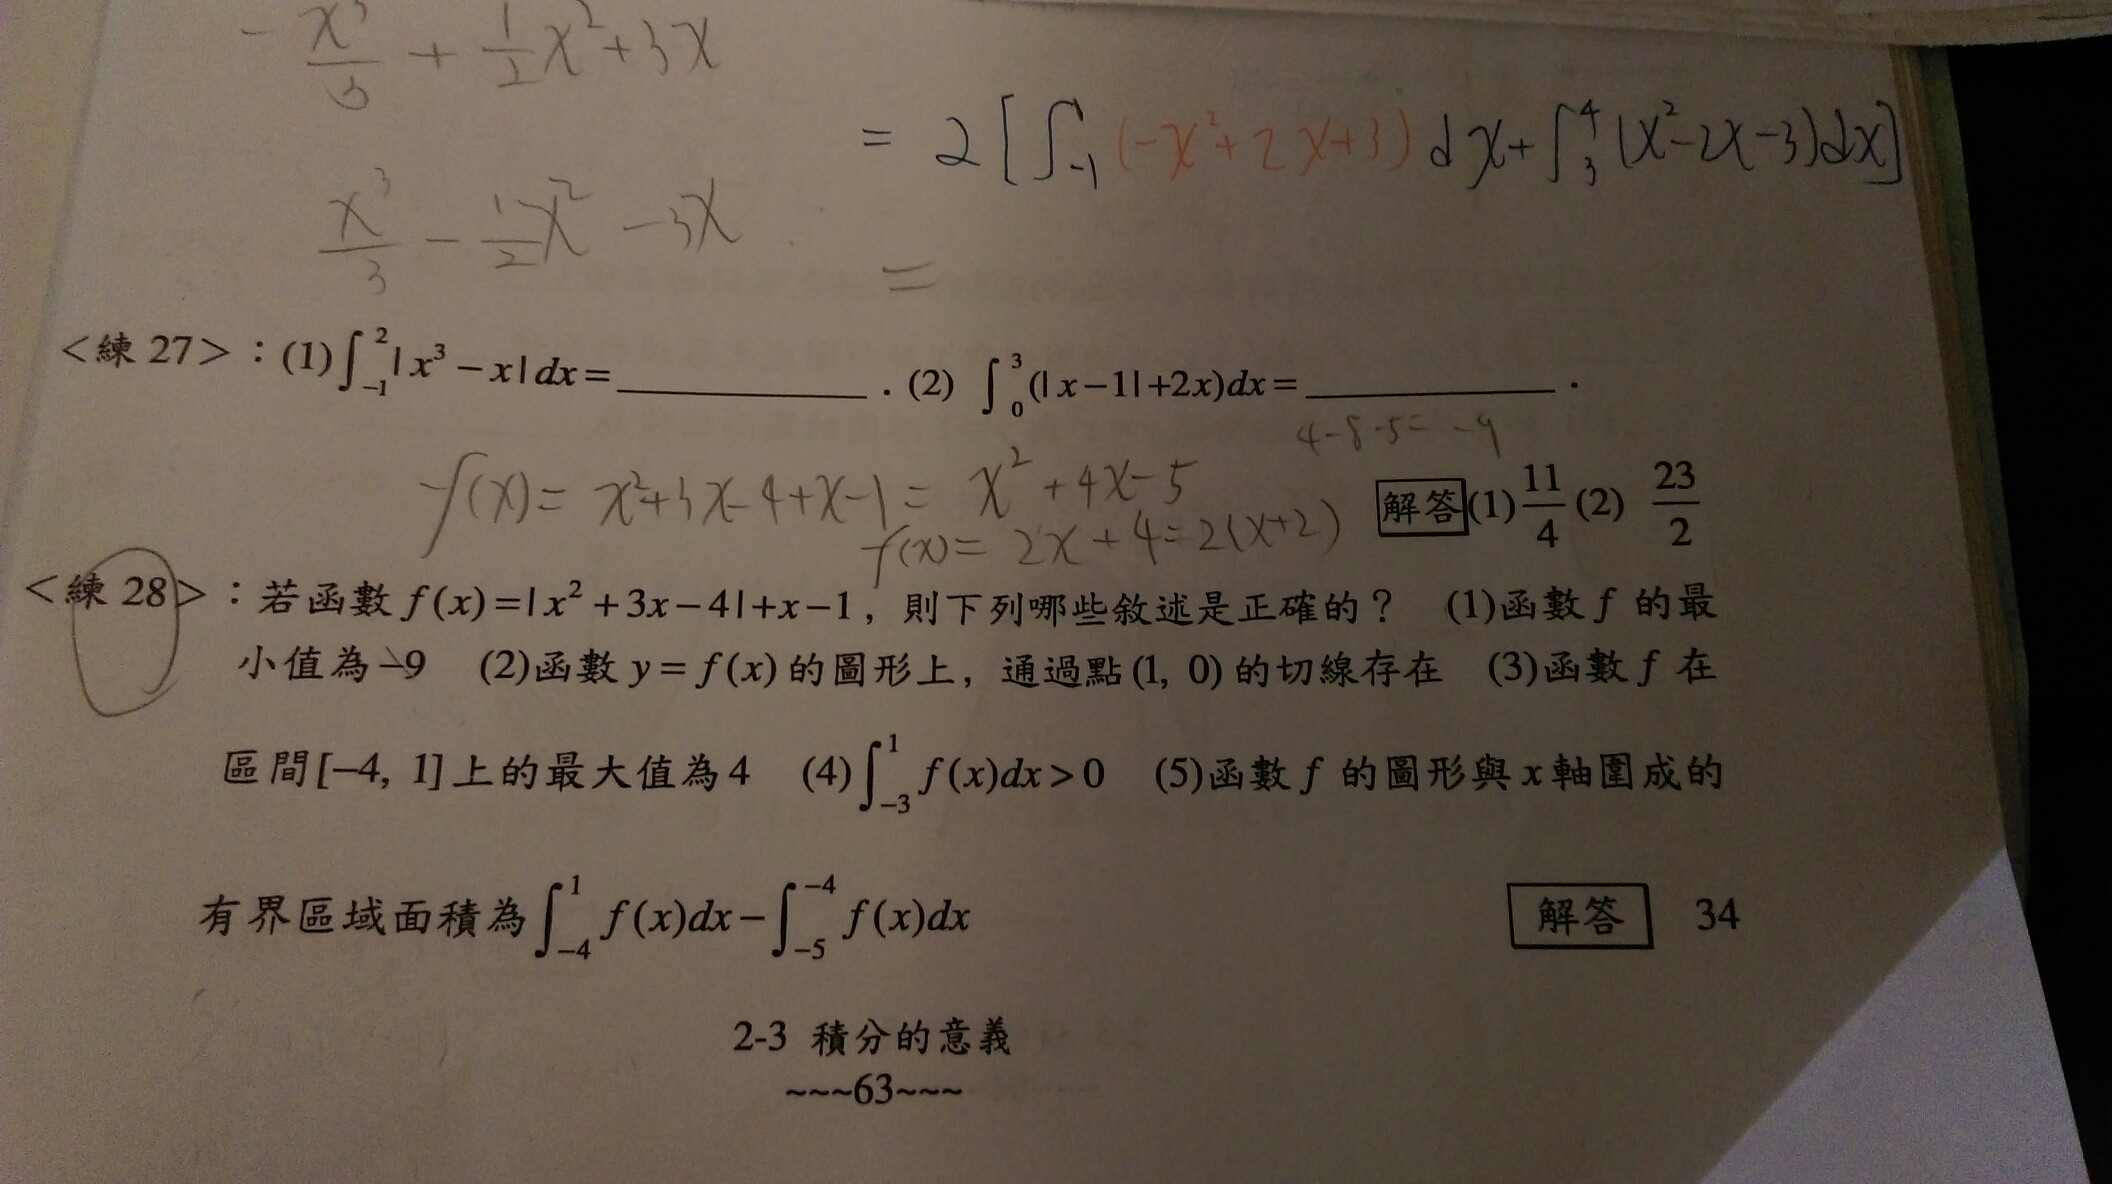 -x³/3 + 1/2 x² + 3x
= 2[∫₋₁ (-x²+2x+3) dx + ∫₃⁴ (x²-2x-3)dx]
x³/3 - 1/2 x² - 3x
=
<練 27>：(1)∫₋₁² |x³-x|dx=__________．(2) ∫₀³ (|x-1|+2x)dx=__________．
4-8-5=-9
f(x)= x²+3x-4+x-1= x²+4x-5
解答(1) 11/4 (2) 23/2
f(x)= 2x+4=2(x+2)
<練 28>：若函數 f(x)=|x²+3x-4|+x-1，則下列哪些敘述是正確的？ (1)函數 f 的最
小值為-9 (2)函數 y=f(x) 的圖形上，通過點(1, 0)的切線存在 (3)函數 f 在
區間[-4, 1]上的最大值為4 (4)∫₋₃¹ f(x)dx>0 (5)函數 f 的圖形與 x 軸圍成的
有界區域面積為∫₋₄¹ f(x)dx-∫₋₅⁻⁴ f(x)dx
解答 34
2-3 積分的意義
~~~63~~~